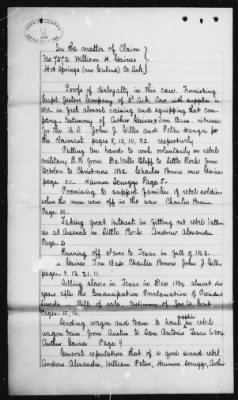 In the matter of Claim
No 7572 William H. Gaines
Hot Springs (now Garland) Co Ark
Proofs of disloyalty in this case. Furnishing
Capt Company of Ark Cav with supplies in
1861 in fact almost raising and equipping that com-
pany. testimony of Arthur Gaines & Jim Bass. witnesses
for the U.S. John J. Gillis and Peter for
the claimant pages 8, 13, 10, 22 respectively
Putting ten hands to work voluntarily on rebel
military R.R. from De Valls Bluff to Little Rock from
October to Christmas 1862. Charles Brown
pages
Promising to support families of rebel soldiers
when the men were off in the war Charles Brown
Page
Taking great interest in getting out rebel
at Arsenal in Little Rock. Andrew Alexander
Page
Running off slaves to Texas in fall of 1862.
Gaines Jim Bass Charles Brown John J. Gillis
pages 9, 13, 21, 11.
Selling slaves in Texas in Dec 1864 almost two
years after the Emancipation Proclamation of President
Lincoln. Bill of sale. testimony of
Pages 15, 16,
Sending wagon and team to haul in rebel
wagon train from Austin to San Antonio Texas
Arthur Gaines Page 9
General reputation that of a good sound rebel.
Andrew Alexander, William Peter,